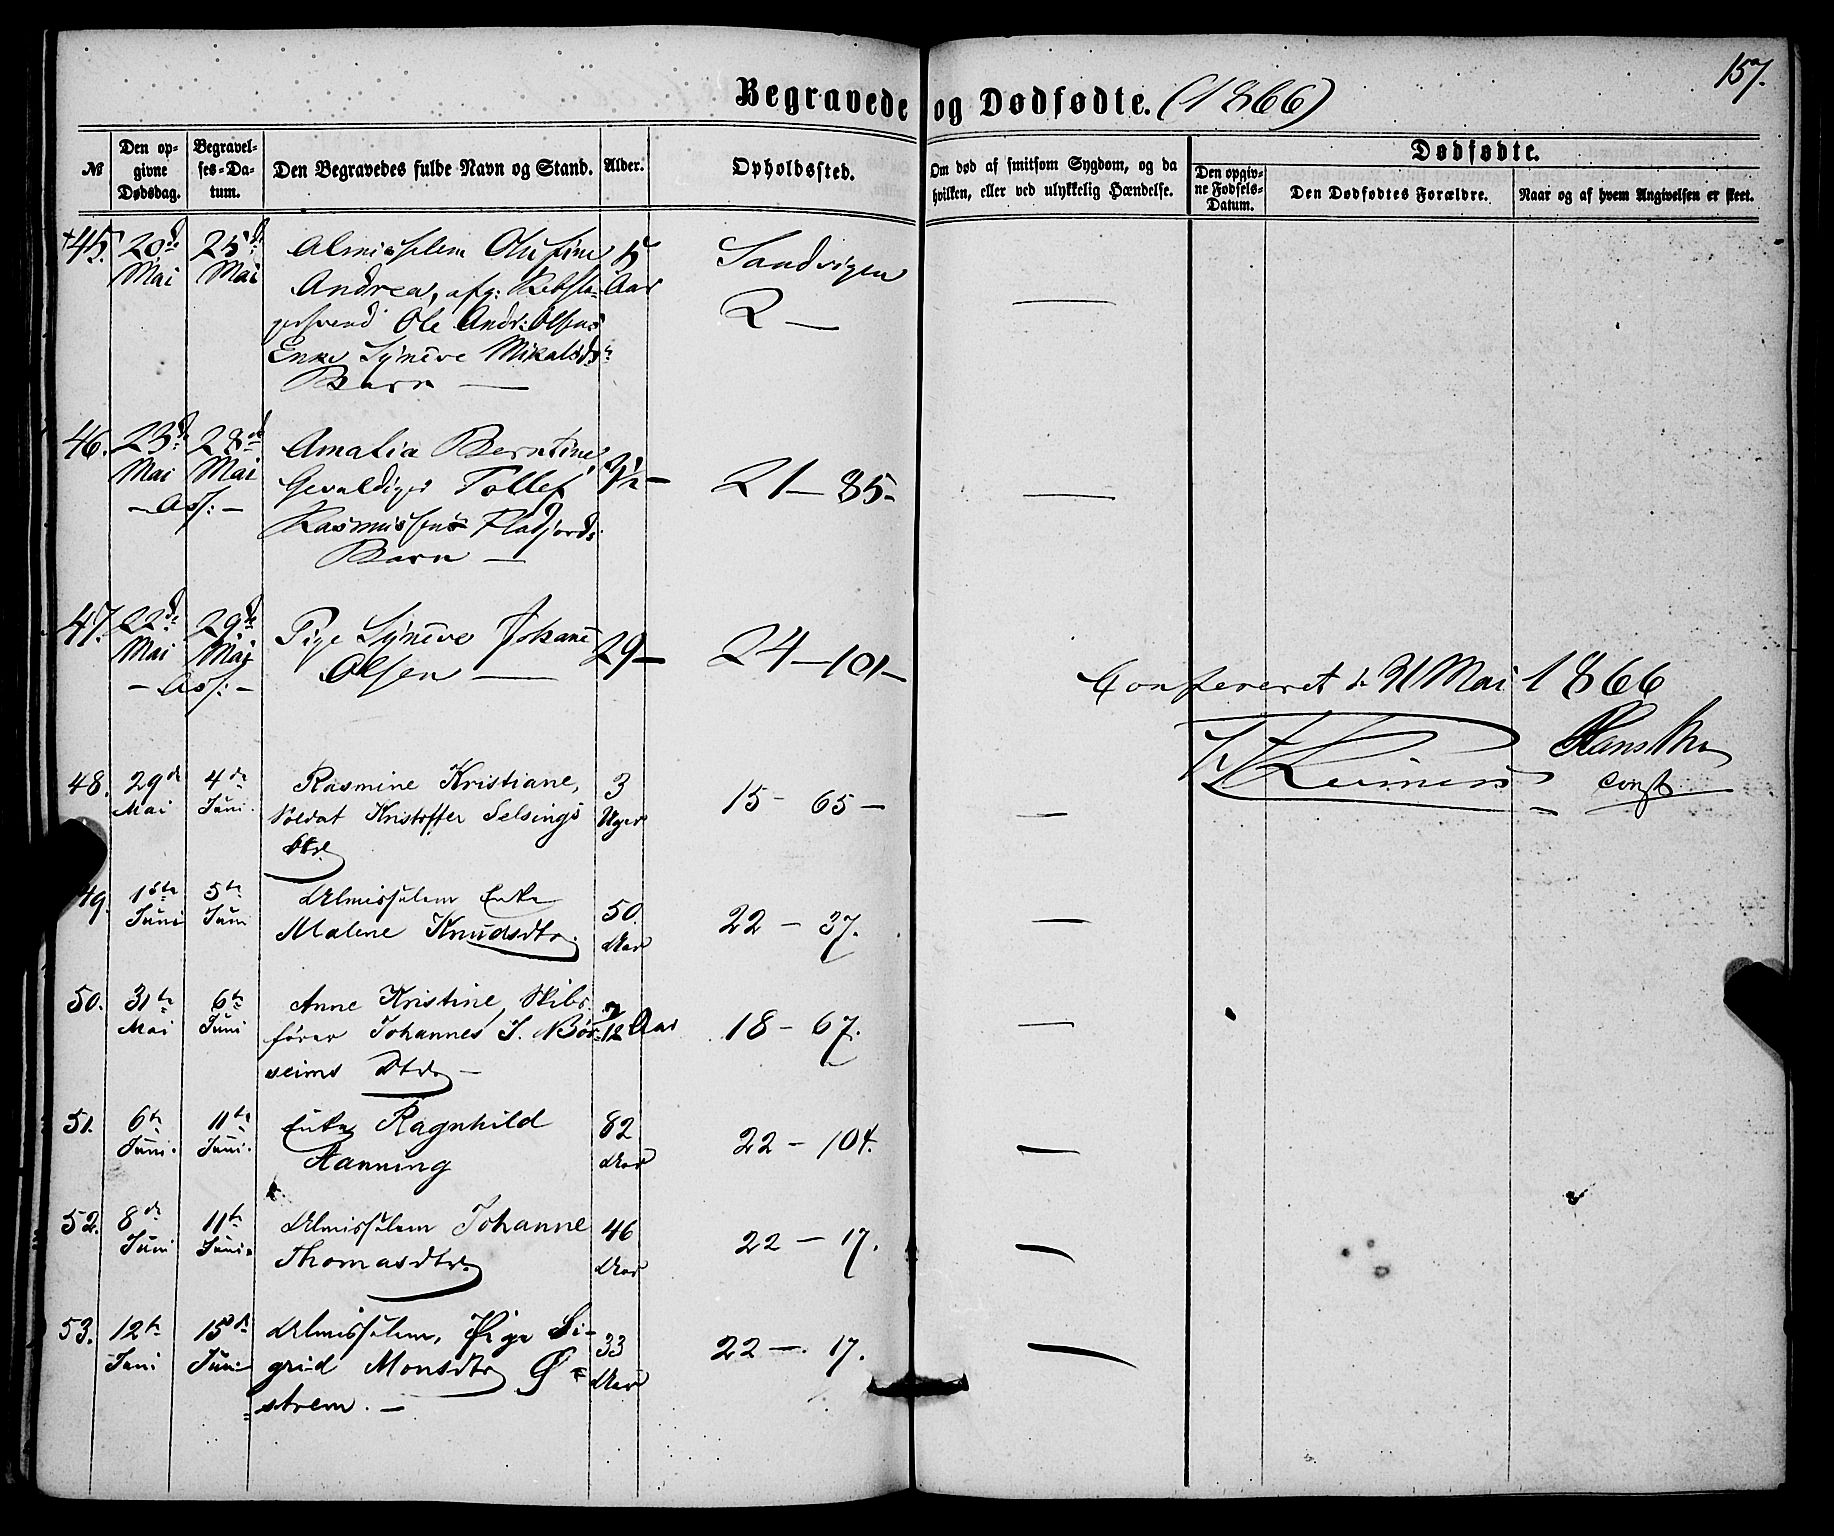 157.
Begravede og Dødfødte. (1866)
№
Den opgivne Dødsdag.
Begravelses-Datum.
Den Begravedes fulde Navn og Stand.
Alder.
Opholdssted.
Om død af smitsom Sygdom, og da hvilken, eller ved ulykkelig Hændelse.
Dødfødte.
Den opgivne Fødsels-Datum.
Den Dødfødtes Forældre.
Naar og af hvem Angivelsen er skeet.
45. 20de 25de Almisselem Olufine 5
Mai Mai Andrea, afg: Rebsla- Aar
gersvend Ole Andr: Olsens
Enke Synève Mikalsdtr
Barn —
Sandvigen
2 —
46. 23de 28de Amalia Berntine
Mai Mai Gevaldiger Tollef
— Ass: — Rasmussens Fladjord
Barn —
21 — 85 —
47. 22de 29de Pige Synève Johane 29 —
Mai Mai Olsen —
— Ass: —
24 — 101 —
Confereret d. 31 Mai 1866
const
48. 29de 4de Rasmine Kristiane, 3
Mai Juni Soldat Kristoffer Selsings Uger
Dtr.
15 — 65 —
49. 1ste 5te Almisselem Enke 50
Juni Juni Malene Knudsdtr. Aar
22 — 37.
50. 31te 6te Anne Kristine, Skibs
Mai Juni fører Johannes J. Bør- 7/12 Aar
seims Dtr —
18 — 67.
51. 6te 11te Enke Ragnhild 82
Juni Juni Hanning Aar
22 — 104.
52. 8de 11te Almisselem Johanne 46
Juni Juni Thomasdtr. Aar
22 — 17.
53. 12te 15de Almisselem, Pige Si- 33
Juni Juni grid Monsdtr Ø= Aar
strem. —
22 — 17.